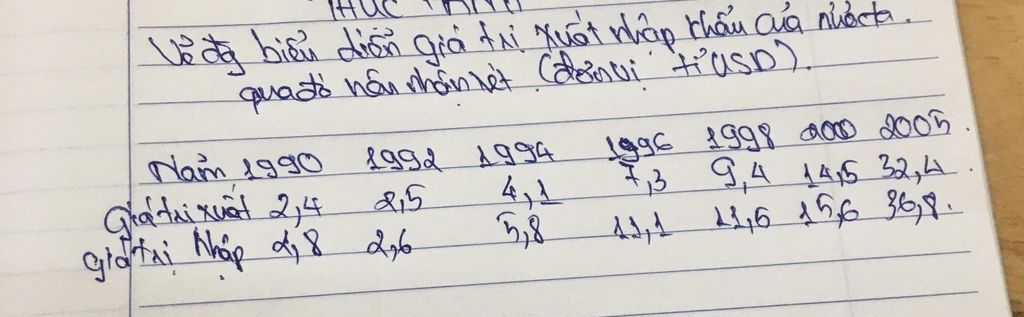 THỰC HÀNH
Vẽ đg biểu diễn giá trị xuất nhập khẩu của nước ta.
qua đó nêu nhận xét. (đơn vị tỉ USD).
Năm 1990 1992 1994 1996 1998 2000 2005.
Giá trị xuất 2,4 2,5 4,1 7,3 9,4 14,5 32,4
giá trị Nhập 2,8 2,6 5,8 11,1 11,6 15,6 36,8.